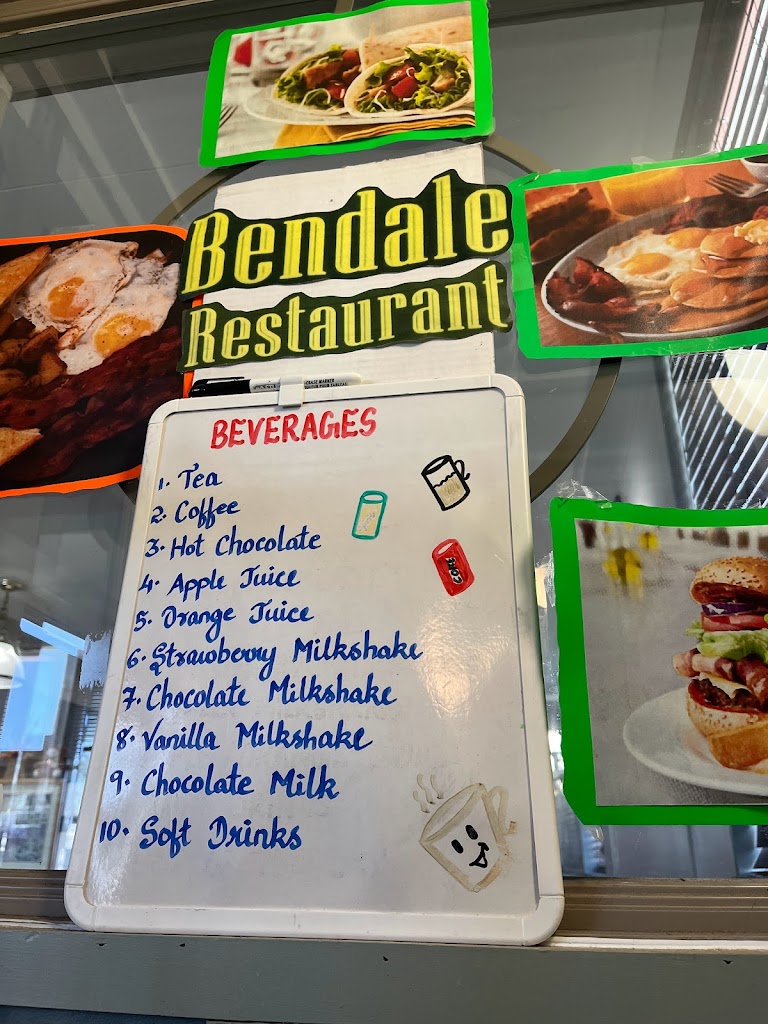 Bendale
Restaurant
BEVERAGES
1. Tea
2. Coffee
3. Hot Chocolate
4. Apple Juice
5. Orange Juice
6. Strawberry Milkshake
7. Chocolate Milkshake
8. Vanilla Milkshake
9. Chocolate Milk
10. Soft Drinks
COKE